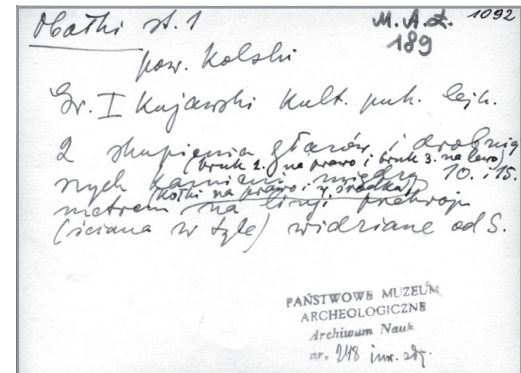 Obałki st. 1
M.A.Ł. 1092
189
pow. Kolski
Gr. I Kujawski Kult. puh. lejk.
2 skupienia głazów i drobniej
(bruk 2. na prawo i bruk 3. na lewo)
szych kamieni między 10. i 15.
(kołki na prawo i w środku)
metrem na linji przekroju
(ściana w tyle) widziane od S.
PAŃSTWOWE MUZEUM
ARCHEOLOGICZNE
Archiwum Nauk.
nr. 248 inw. odj.